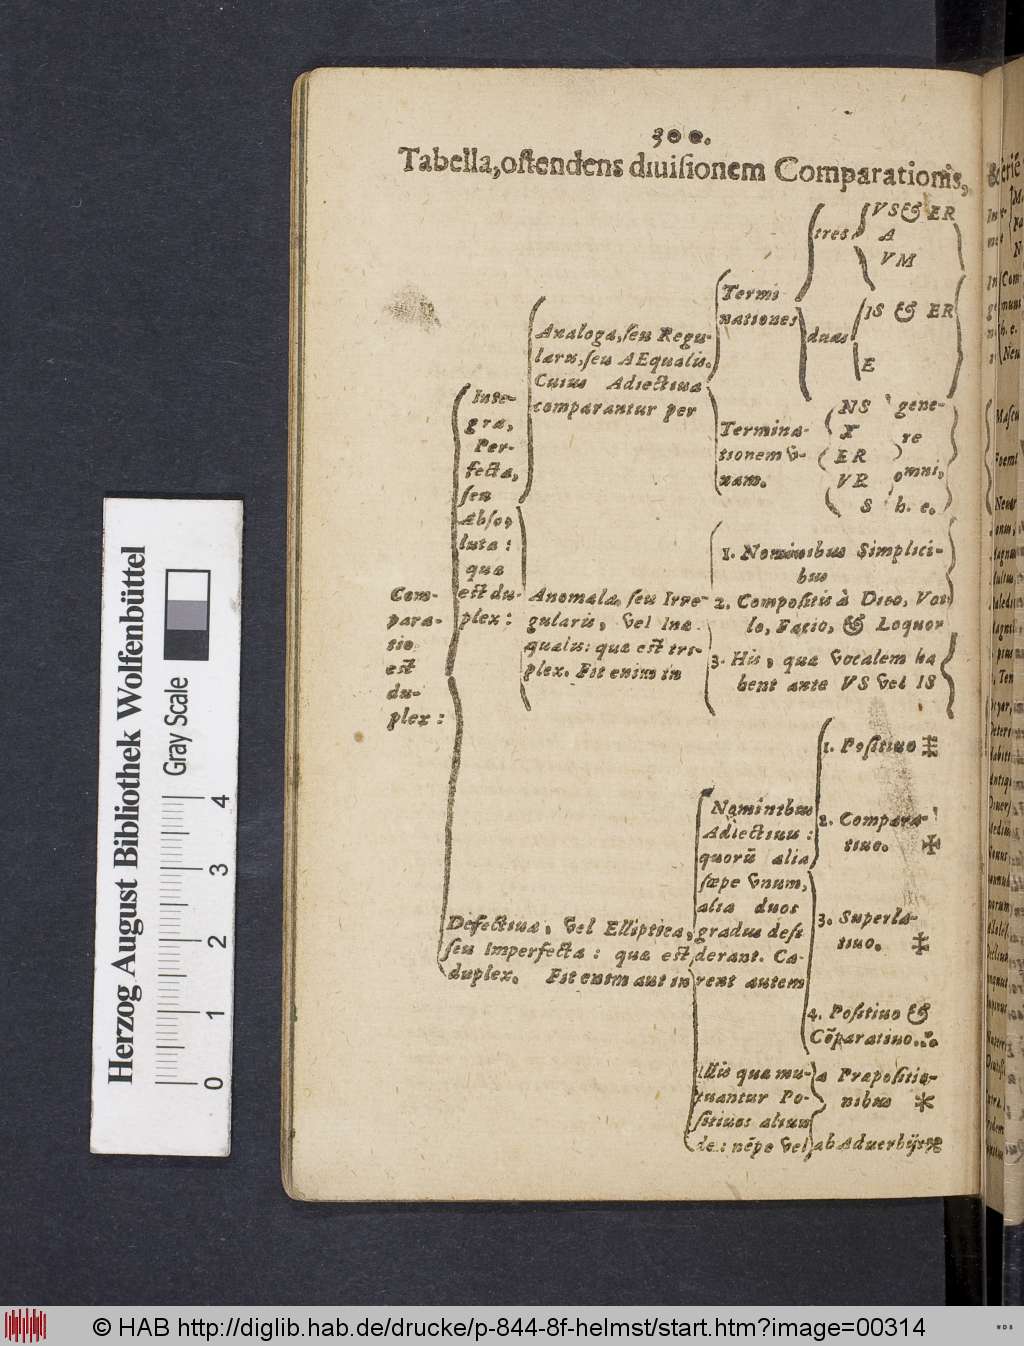 300.
Tabella, ostendens diuisionem Comparationis,
Com-
para-
tio
est
du-
plex:
Inte-
gra,
Per-
fecta,
seu
Abso-
luta:
quæ
est du-
plex:
Analoga, seu Regu-
laris, seu AEqualis.
Cuius Adiectiua
comparantur per
Termi
nationes
tres
VS & ER
A
VM
duas
IS & ER
E
Termina-
tionem v-
nam.
NS
X
ER
VR
S
gene-
re
omni,
h. e.
Anomala, seu Irre-
gularis, vel Inæ
qualis: quæ est tri-
plex. Fit enim in
1. Nominibus Simplici-
bus
2. Compositis à Dico, Vo-
lo, Facio, & Loquor
3. His, quæ vocalem ha
bent ante VS vel IS
Defectiua, vel Elliptica,
seu Imperfecta: quæ est
duplex. Fit enim aut in
Nominibus
Adiectiuis:
quorū alia
sæpe vnum,
alia duos
gradus desi
derant. Ca-
rent autem
1. Positiuo
2. Compara-
tiuo.
3. Superla-
tiuo.
4. Positiuo &
Cōparatiuo.
Illis quæ mu-
tuantur Po-
sitiuos aliun
de: nēpe vel
a Præpositio-
nibus
ab Aduerbijs
Herzog August Bibliothek Wolfenbüttel
Gray Scale
0 1 2 3 4
© HAB http://diglib.hab.de/drucke/p-844-8f-helmst/start.htm?image=00314